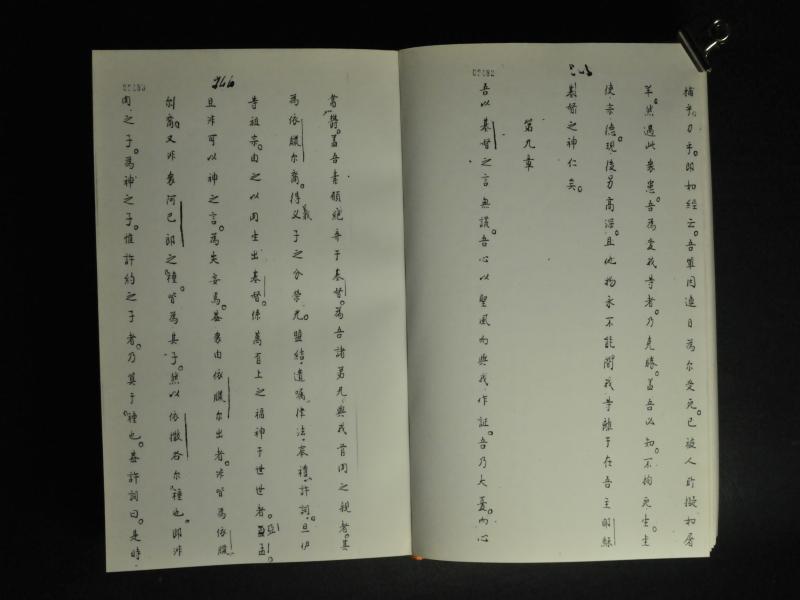 補乎刀乎即如經云吾輩因連日為尔受死已被人眇擬如屠
羊然過此衆患吾為爱我等者乃克勝盖吾以知不拘死生
使宗德現後另高深且他物永不能間我等離于在吾主耶穌
基督之神仁矣
第九章
吾以基督之言無謊吾心以聖風而與我作証吾乃大憂內心
當欝盖吾青願絶弃于基督為吾諸弟兄與我首肉之親者其
為依臘尔裔得義子之分榮光盟結遺嘱律法衷禮許詞且伊
等祖宗由之以肉生出基督係萬有上之福神于世世者亞孟
且非可以神之言為失妄焉盖衆由依臘尔出者非皆為依臘
尔裔又非衆阿巴郎之種皆為其子然以依撒各尔種也即非
肉之子為神之子惟許約之子者乃算于種也盖許詞曰是時